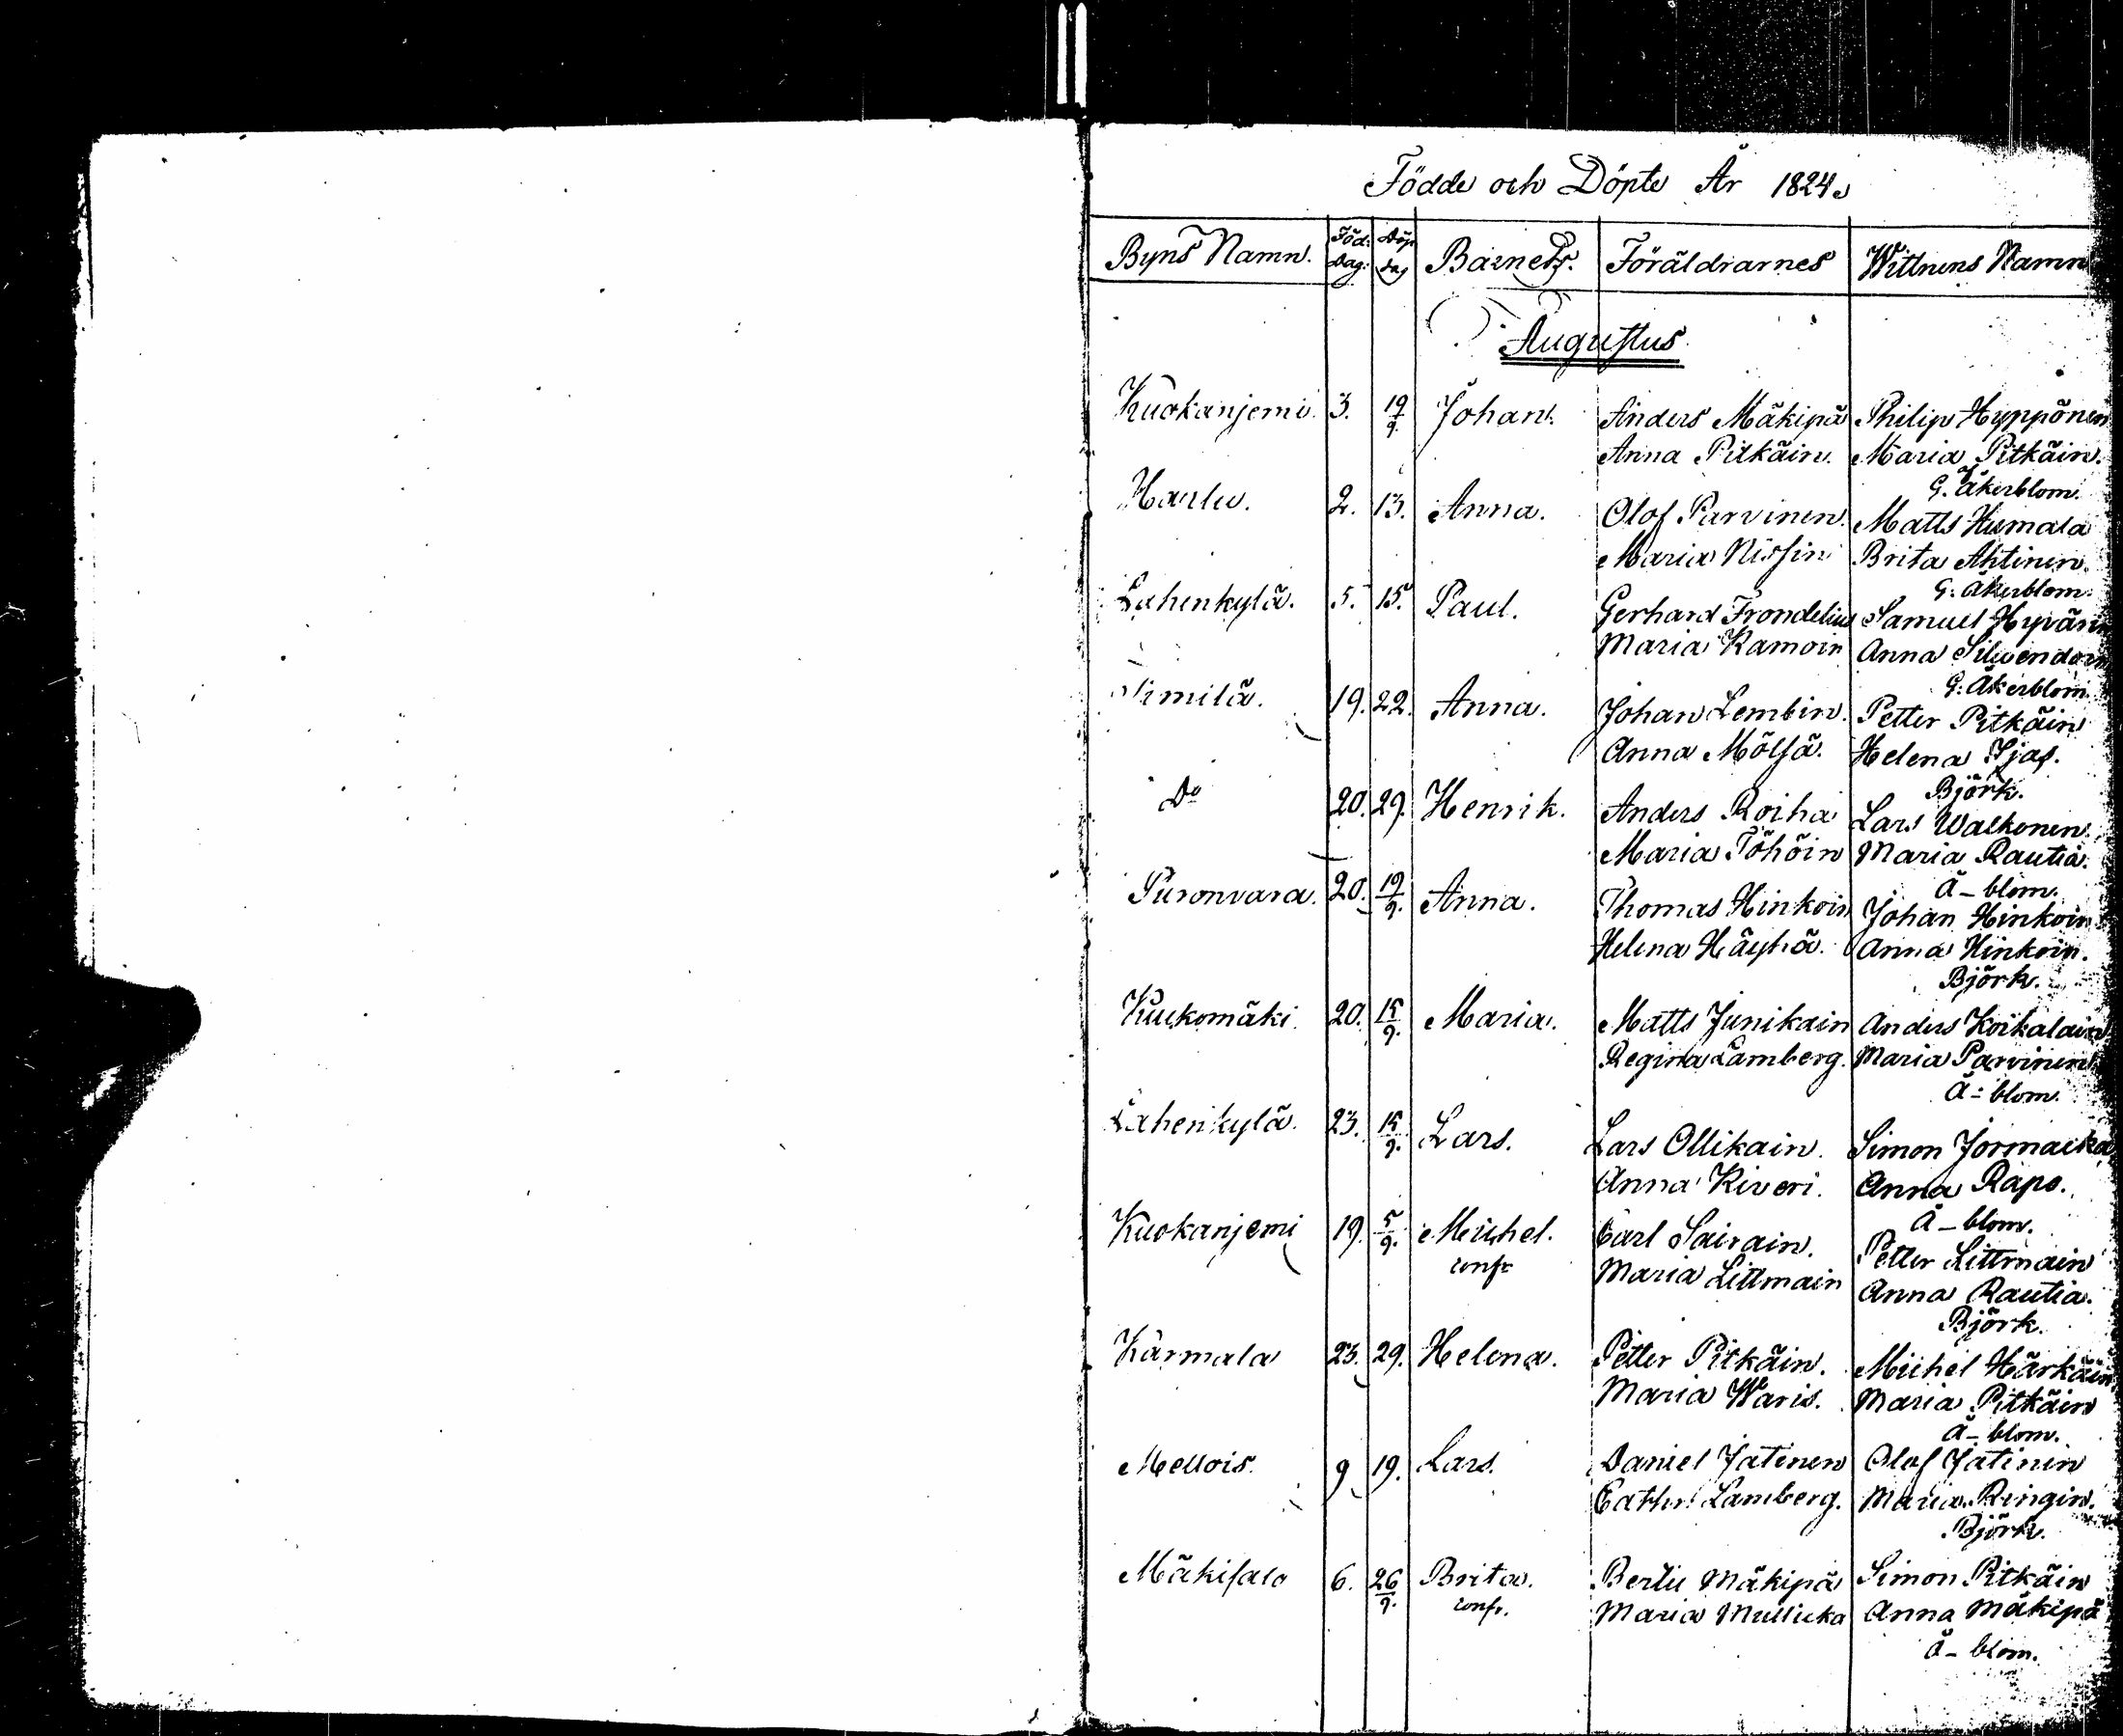 Födde och Döpte År 1824.
Byns Namn. Föd: Dag: Döp Dag Barnets. Föräldrarnes Wittnens Namn
Augustus
Kuokanjemi. 3. 19/9. Johan. Anders Mäkipä Philip Hyppönen
Anna Pitkäin. Maria Pitkäin.
G. Åkerblom.
Harlu. 2. 13. Anna. Olof Parvinen. Matts Humala
Maria Nissin Brita Ahtinen.
G. Åkerblom.
Lahenkylä. 5. 15. Paul. Gerhard Frondelius Samuel Hyvärin
Maria Ramoin Anna Silvendoin
G. Åkerblom.
Nimilä. 19. 22. Anna. Johan Lembin. Petter Pitkäin
Anna Mölsä. Helena Ijas.
Björk.
Do 20. 29. Henrik. Anders Roiha Lars Walkonen.
Maria Töhöin Maria Rautia.
Å-blom.
Puronvara. 20. 19/9. Anna. Thomas Hinkoin Johan Hinkoin
Helena Häyhä. Anna Hinkoin.
Björk.
Kuukomäki. 20. 15/9. Maria. Matts Junikain Anders Koikalain
Regina Lamberg. Maria Parvinen
Å-blom.
Lahenkylä. 23. 15/9. Lars. Lars Ollikain. Simon Jormacka
Anna Kiveri. Anna Rapo.
Å-blom.
Kuokanjemi 19. 5/9. Michel. Carl Sairain. Petter Littmain
conf. Maria Littmain Anna Rautia.
Björk.
Kärmala 23. 29. Helena. Petter Pitkäin. Michel Härkäin
Maria Waris. Maria Pitkäin
Å-blom.
Mellois. 9 19. Lars. Daniel Jatinen Olof Jatinin
Cathr. Lamberg. Maria Ringin.
Björk.
Mäkisalo 6. 26/9. Brita. Bertil Mäkipä Simon Pitkäin
conf. Maria Mullicka Anna Mäkipä
Å-blom.